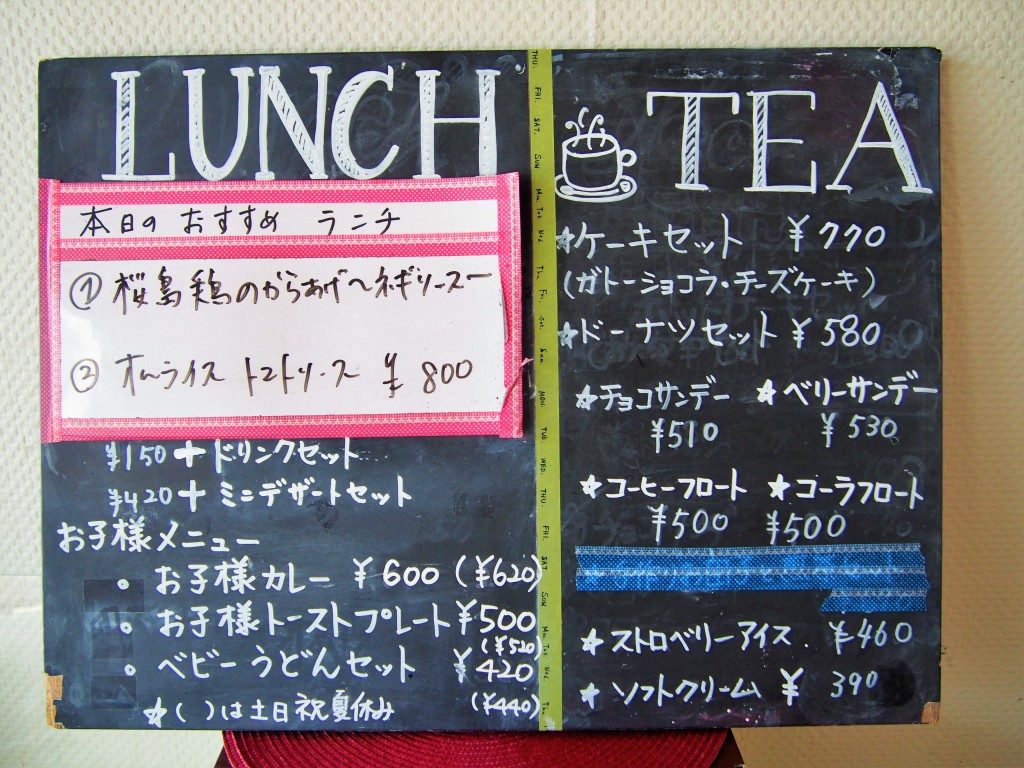 LUNCH
本日の おすすめ ランチ
① 桜島鶏のからあげ〜ネギソースー
② オムライス トマトソース ¥800
¥150+ドリンクセット
¥420+ミニデザートセット
お子様メニュー
。お子様カレー ¥600(¥620)
。お子様トーストプレート¥500
(¥520)
。ベビーうどんセット ¥420
☆( )は土日祝夏休み (¥440)
TEA
☆ケーキセット ¥770
(ガトーショコラ・チーズケーキ)
☆ドーナツセット ¥580
☆チョコサンデー ☆ベリーサンデー
¥510 ¥530
☆コーヒーフロート ☆コーラフロート
¥500 ¥500
☆ストロベリーアイス. ¥460
☆ソフトクリーム ¥390
THU. FRI. SAT. SUN Mon. Tue. Wed. Thu. Fri. Sat. Sun. MON. TUE. WED. THU. FRI. SAT. SUN Mon. Tue. Wed. Thu.